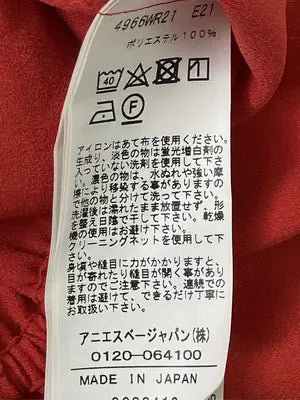 4966WR21 E21
ポリエステル100%
40
F
アイロンはあて布を使用ください。
生成り、淡色の物は蛍光増白剤の
入っていない洗剤を使用して下さ
い。濃色の物は、水ぬれや強い摩
擦により移染する事がありますの
で他の物と分けて洗って下さい。
洗濯後は濡れたまま放置せず、形
を整え日陰で干して下さい。乾燥
機の使用はお避け下さい。
クリーニングネットを使用して下
さい。
身頃や縫目に力がかかりますと、
目が寄れたり縫目が開く事があり
ますのでご注意下さい。連続での
着用は避けて、できるだけ丁寧に
お取扱い下さい。
アニエスベージャパン(株)
0120-064100
MADE IN JAPAN